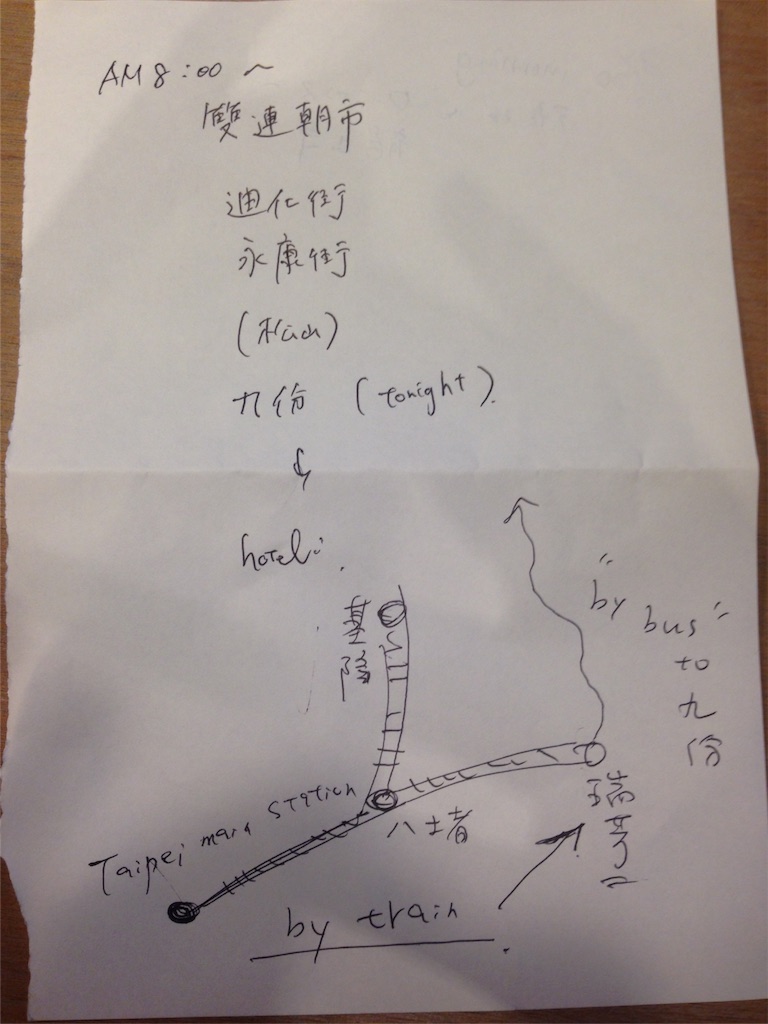 AM 8:00 ~
雙連朝市
迪化街
永康街
(松山)
九份 (tonight).
↓
hotel
基隆
"by bus"
to
九份
Taipei main Station
八土者
瑞芳
by train